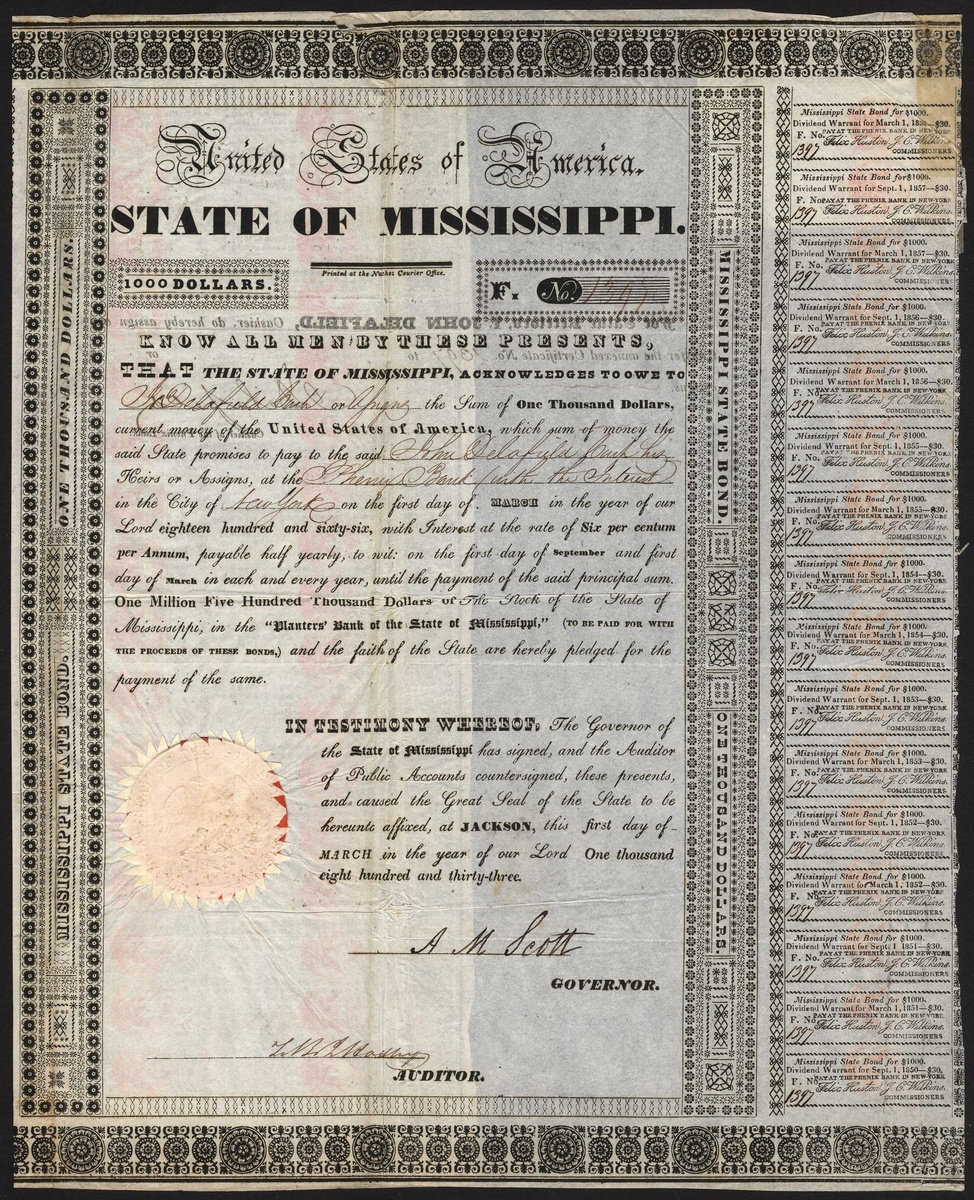 United States of America.
STATE OF MISSISSIPPI.
Printed at the Natchez Courier Office.
1000 DOLLARS.
F. No. 1397
KNOW ALL MEN BY THESE PRESENTS,
THAT THE STATE OF MISSISSIPPI, ACKNOWLEDGES TO OWE TO
Jn Delafield Cash or Assigns the Sum of One Thousand Dollars,
current money of the United States of America, which sum of money the
said State promises to pay to the said John Delafield Cash his
Heirs or Assigns, at the Phenix Bank with the Interest
in the City of New York on the first day of MARCH in the year of our
Lord eighteen hundred and sixty-six, with Interest at the rate of Six per centum
per Annum, payable half yearly, to wit: on the first day of September and first
day of March in each and every year, until the payment of the said principal sum.
One Million Five Hundred Thousand Dollars of The Stock of the State of
Mississippi, in the "Planters' Bank of the State of Mississippi," (TO BE PAID FOR WITH
THE PROCEEDS OF THESE BONDS,) and the faith of the State are hereby pledged for the
payment of the same.
IN TESTIMONY WHEREOF, The Governor of
the State of Mississippi has signed, and the Auditor
of Public Accounts countersigned, these presents,
and caused the Great Seal of the State to be
hereunto affixed, at JACKSON, this first day of
MARCH in the year of our Lord One thousand
eight hundred and thirty-three.
A M Scott
GOVERNOR.
AUDITOR.
ONE THOUSAND DOLLARS.
MISSISSIPPI STATE BOND.
MISSISSIPPI STATE BOND.
ONE THOUSAND DOLLARS.
Mississippi State Bond for $1000.
Dividend Warrant for March 1, $30.
F. No. PAY AT THE PHENIX BANK IN NEW-YORK
1397 Felix Huston, J. C. Wilkins.
COMMISSIONERS
Mississippi State Bond for $1000.
Dividend Warrant for Sept. 1, 1857—$30.
F. No. PAY AT THE PHENIX BANK IN NEW-YORK
1397 Felix Huston, J. C. Wilkins.
COMMISSIONERS
Mississippi State Bond for $1000.
Dividend Warrant for March 1, 1857—$30.
F. No. PAY AT THE PHENIX BANK IN NEW-YORK
1397 Felix Huston, J. C. Wilkins.
COMMISSIONERS
Mississippi State Bond for $1000.
Dividend Warrant for Sept. 1, 1856—$30.
F. No. PAY AT THE PHENIX BANK IN NEW-YORK
1397 Felix Huston, J. C. Wilkins.
COMMISSIONERS
Mississippi State Bond for $1000.
Dividend Warrant for March 1, 1856—$30.
F. No. PAY AT THE PHENIX BANK IN NEW-YORK
1397 Felix Huston, J. C. Wilkins.
COMMISSIONERS
Mississippi State Bond for $1000.
Dividend Warrant for Sept. 1, 1855—$30.
F. No. PAY AT THE PHENIX BANK IN NEW-YORK
1397 Felix Huston, J. C. Wilkins.
COMMISSIONERS
Mississippi State Bond for $1000.
Dividend Warrant for March 1, 1855—$30.
F. No. PAY AT THE PHENIX BANK IN NEW-YORK
1397 Felix Huston, J. C. Wilkins.
COMMISSIONERS
Mississippi State Bond for $1000.
Dividend Warrant for Sept. 1, 1854—$30.
F. No. PAY AT THE PHENIX BANK IN NEW-YORK
1397 Felix Huston, J. C. Wilkins.
COMMISSIONERS
Mississippi State Bond for $1000.
Dividend Warrant for March 1, 1854—$30.
F. No. PAY AT THE PHENIX BANK IN NEW-YORK
1397 Felix Huston, J. C. Wilkins.
COMMISSIONERS
Mississippi State Bond for $1000.
Dividend Warrant for Sept. 1, 1853—$30.
F. No. PAY AT THE PHENIX BANK IN NEW-YORK
1397 Felix Huston, J. C. Wilkins.
COMMISSIONERS
Mississippi State Bond for $1000.
Dividend Warrant for March 1, 1853—$30.
F. No. PAY AT THE PHENIX BANK IN NEW-YORK
1397 Felix Huston, J. C. Wilkins.
COMMISSIONERS
Mississippi State Bond for $1000.
Dividend Warrant for Sept. 1, 1852—$30.
F. No. PAY AT THE PHENIX BANK IN NEW-YORK
1397 Felix Huston, J. C. Wilkins.
COMMISSIONERS
Mississippi State Bond for $1000.
Dividend Warrant for March 1, 1852—$30.
F. No. PAY AT THE PHENIX BANK IN NEW-YORK
1397 Felix Huston, J. C. Wilkins.
COMMISSIONERS
Mississippi State Bond for $1000.
Dividend Warrant for Sept. 1 1851—$30.
F. No. PAY AT THE PHENIX BANK IN NEW-YORK
1397 Felix Huston, J. C. Wilkins.
COMMISSIONERS
Mississippi State Bond for $1000.
Dividend Warrant for March 1, 1851—$30.
F. No. PAY AT THE PHENIX BANK IN NEW-YORK
1397 Felix Huston, J. C. Wilkins.
COMMISSIONERS
Mississippi State Bond for $1000.
Dividend Warrant for Sept. 1, 1850—$30.
F. No. PAY AT THE PHENIX BANK IN NEW-YORK
1397 Felix Huston, J. C. Wilkins.
COMMISSIONERS